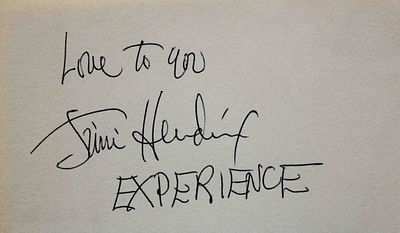 Love to you
Jimi Hendrix
EXPERIENCE